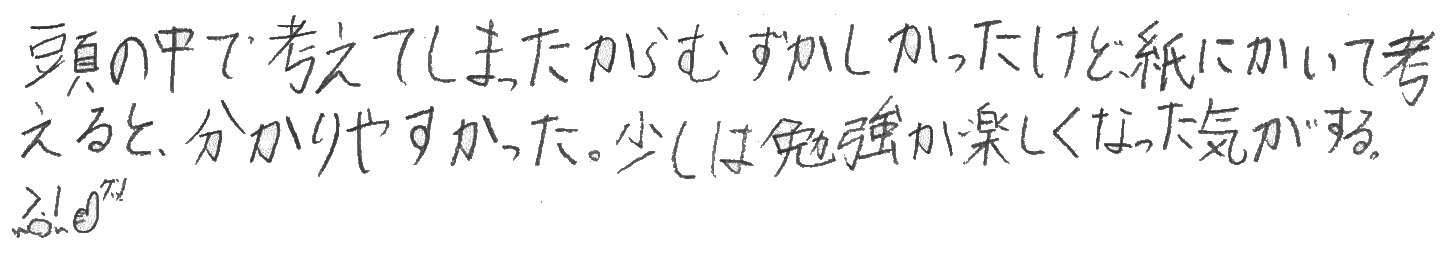 頭の中で考えてしまったからむずかしかったけど、紙にかいて考
えると、分かりやすかった。少しは勉強が楽しくなった気がする。